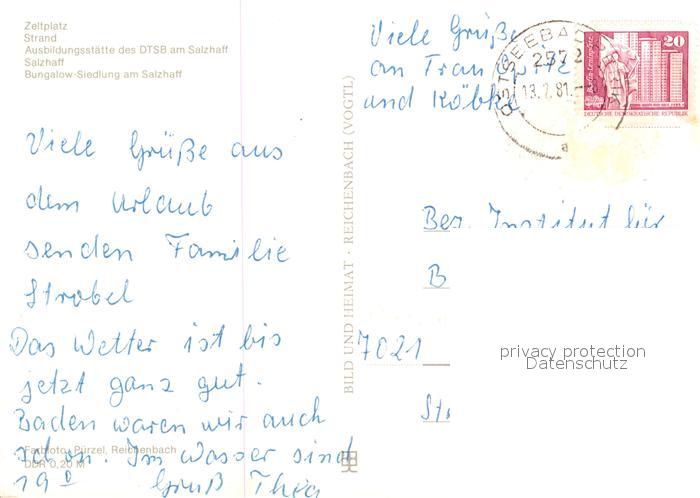 Zeltplatz
Strand
Ausbildungsstätte des DTSB am Salzhaff
Salzhaff
Bungalow-Siedlung am Salzhaff
Viele Grüße aus
dem Urlaub
senden Familie
Strobel
Das Wetter ist bis
jetzt ganz gut.
Baden waren wir auch
schon. Im Wasser sind
19°
Gruß Thea
Farbfoto: Pürzel, Reichenbach
DDR 0,20 M
BILD UND HEIMAT · REICHENBACH (VOGTL)
Viele Grüße
an Frau
und
OSTSEEBAD RERIK
2572
13.7.81.
20
DEUTSCHE DEMOKRATISCHE REPUBLIK
Bez. Institut für
B
7021
privacy protection
Datenschutz